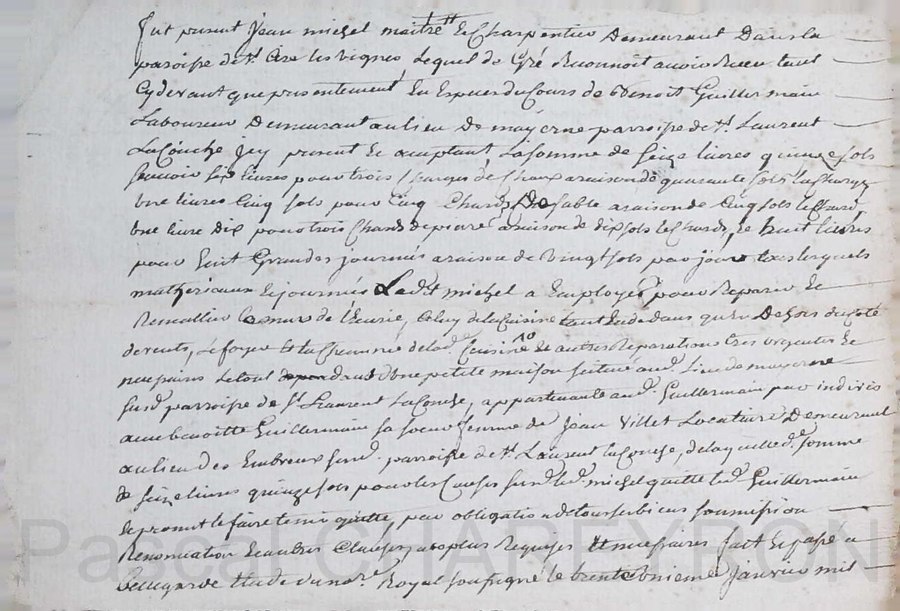 fut present Jean michel maitre Charpentier Demeurant Dans la
paroisse de st. Cire les vignes Lequel de Gré Reconnoit avoir Receu tant
Cy devant que presentement En Especes du Cours de Benoit Guillermain
Laboureur Demeurant au lieu De mayerne parroisse de st. Laurent
La Conche Jcy present & acceptant La somme de seize livres quinze sols
scavoir six livres pour trois charges de chaux a raison de quarante sols la charge
une livres Cinq sols pour Cinq Chards De sable a raison de Cinq sols le Chard
une livre dix pour trois Chards de pierre a raison de dix sols le Chards, & huit livres
pour huit Grandes journés a raison de vingt sols par jour tous lesquels
matheriaux & journés Ledt michel a Employés pour Reparer &
le mur de l'Ecurie, Celuy de la Cuisine tant En dedans qu'En Dehors du Coté
de vents, le foyer Et la Cheminé de lad. Cuisine & autres Reparations tres urgentes &
le tout dans une petite maison scituée aud. Lieu de mayerne
susd. parroisse de St Laurent La Conche, appartenante aud. Guillermain par indivis
avec benoitte Guillermain sa soeur femme de Jean Villet Locataire Demeurant
au lieu des Embreux susd. parroisse de st. Laurent la Conche, de laquelle d. somme
de seize livres quinze sols pour les Causes susd. led. michel quitte led. Guillermain
& promet le faire tenir quitte, par obligation de tous ses biens soumission
Renonciation & autres Clauses, a ce plus Requises Et necessaires fait & passé a
bellegarde Etude du nore. Royal soussigné le trente unieme Janvier mil
Pascal CHAPEYRON